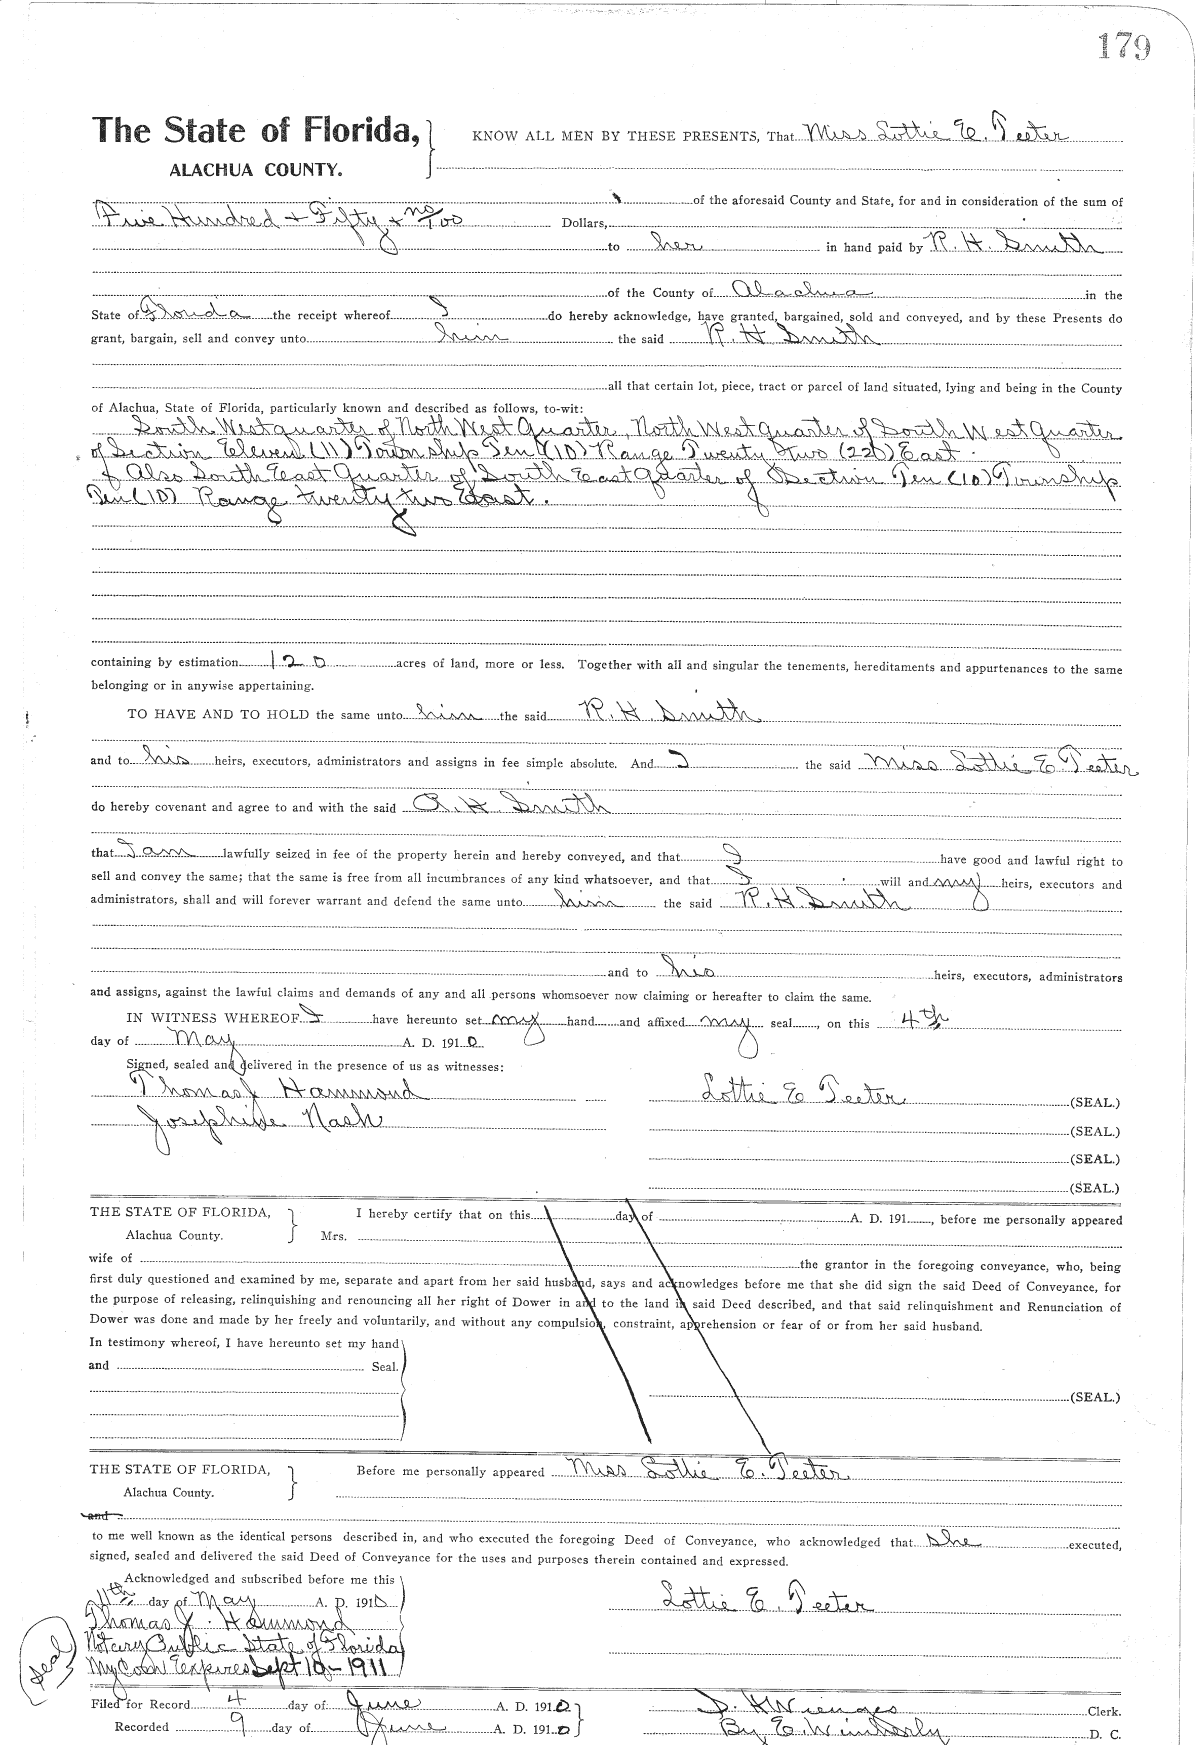 179
The State of Florida, KNOW ALL MEN BY THESE PRESENTS, That Miss Lottie E. Teeter
ALACHUA COUNTY.
of the aforesaid County and State, for and in consideration of the sum of
Five Hundred + Fifty + no/100 Dollars,
to her in hand paid by R. H. Smith
of the County of Alachua in the
State of Florida the receipt whereof I do hereby acknowledge, have granted, bargained, sold and conveyed, and by these Presents do
grant, bargain, sell and convey unto him the said R H Smith
all that certain lot, piece, tract or parcel of land situated, lying and being in the County
of Alachua, State of Florida, particularly known and described as follows, to-wit:
South West quarter of North West Quarter, North West quarter of South West quarter
of Section Eleven (11) Township Ten (10) Range Twenty two (22) East.
& Also South East Quarter of South East Quarter of Section Ten (10) Township
Ten (10) Range twenty two East.
containing by estimation 120 acres of land, more or less. Together with all and singular the tenements, hereditaments and appurtenances to the same
belonging or in anywise appertaining.
TO HAVE AND TO HOLD the same unto him the said R. H. Smith
and to his heirs, executors, administrators and assigns in fee simple absolute. And I the said Miss Lottie E Teeter
do hereby covenant and agree to and with the said R. H Smith
that I am lawfully seized in fee of the property herein and hereby conveyed, and that I have good and lawful right to
sell and convey the same; that the same is free from all incumbrances of any kind whatsoever, and that I will and my heirs, executors and
administrators, shall and will forever warrant and defend the same unto him the said R. H. Smith
and to his heirs, executors, administrators
and assigns, against the lawful claims and demands of any and all persons whomsoever now claiming or hereafter to claim the same.
IN WITNESS WHEREOF I have hereunto set my hand and affixed my seal, on this 4th
day of May A. D. 1910
Signed, sealed and delivered in the presence of us as witnesses:
Thomas J Hammond Lottie E Teeter (SEAL.)
Josephine Nash (SEAL.)
(SEAL.)
(SEAL.)
THE STATE OF FLORIDA, I hereby certify that on this day of A. D. 191, before me personally appeared
Alachua County. Mrs.
wife of the grantor in the foregoing conveyance, who, being
first duly questioned and examined by me, separate and apart from her said husband, says and acknowledges before me that she did sign the said Deed of Conveyance, for
the purpose of releasing, relinquishing and renouncing all her right of Dower in and to the land in said Deed described, and that said relinquishment and Renunciation of
Dower was done and made by her freely and voluntarily, and without any compulsion, constraint, apprehension or fear of or from her said husband.
In testimony whereof, I have hereunto set my hand
and Seal.
(SEAL.)
THE STATE OF FLORIDA, Before me personally appeared Miss Lottie E. Teeter
Alachua County.
and
to me well known as the identical persons described in, and who executed the foregoing Deed of Conveyance, who acknowledged that she executed,
signed, sealed and delivered the said Deed of Conveyance for the uses and purposes therein contained and expressed.
Acknowledged and subscribed before me this
11th day of May A. D. 1910 Lottie E. Teeter
Thomas J. Hammond
Notary Public State of Florida
My Com Expires Sept 10-1911
Seal
Filed for Record 4 day of June A. D. 1910 S. H Wienges Clerk.
Recorded 9 day of June A. D. 1910 By E. Wimberly D. C.